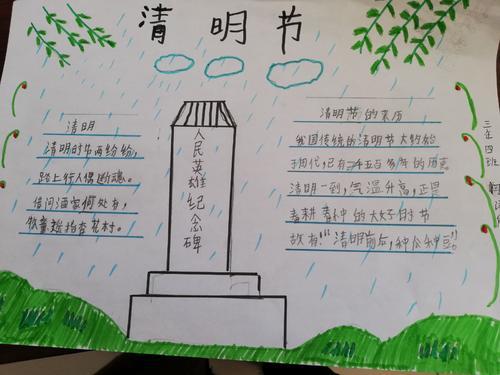 清明节
清明
清明时节雨纷纷，
路上行人偶断魂。
借问酒家何处有，
牧童遥指杏花村。
人民英雄纪念碑
清明节的来历
我国传统的清明节大约始
于周代，已有二千五百多年的历史。
清明一到，气温升高，正是
春耕春种的大好时节
故有"清明前后，种瓜种豆"。
三年四班